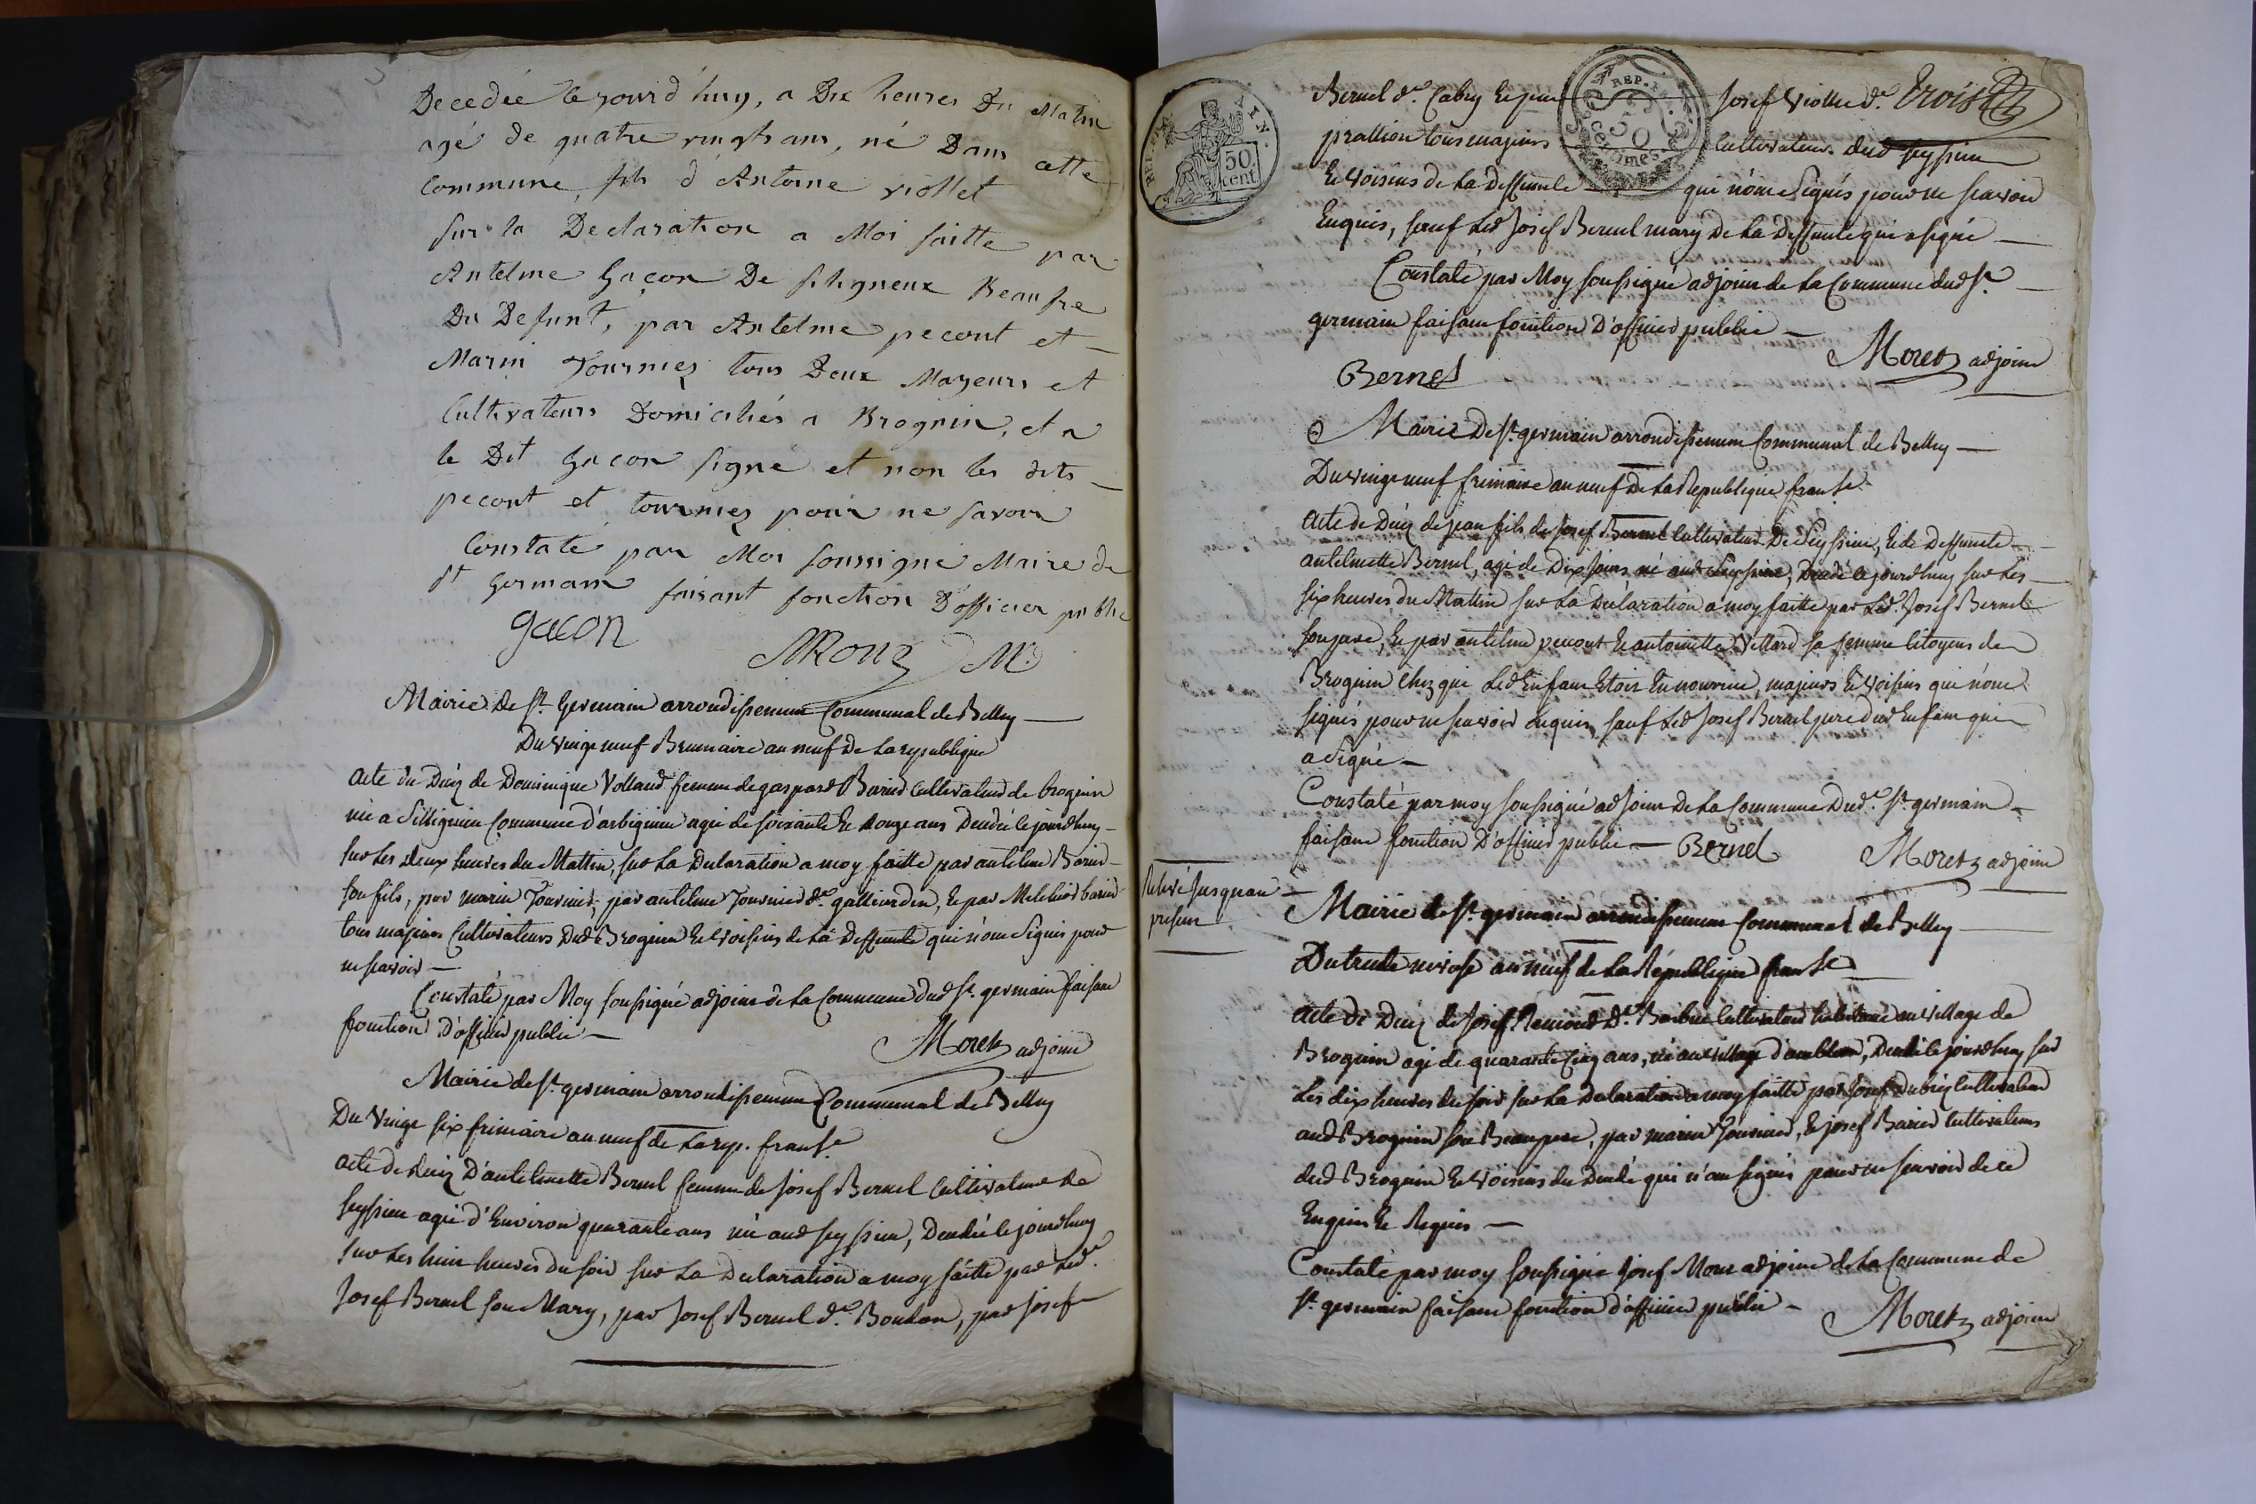 Decedée le jourd'huy, a Dix heures Du Matin
agé de quatre vingts ans, né Dans cette
Commune, fils d'Antoine viollet
sur la Declaration a Moi faitte par
Antelme Gacon De Siligneux Beaufre
Du Defunt, par Antelme pecont et
Marin Tournier tous Deux Mayeurs et
Cultivateurs Domiciliés a Brognin, et a
le Dit Gacon signé et non les dits
pecont et tournier pour ne savoir
Constaté par Moi soussigné Maire de
St Germain faisant fonction D'officier public
Gacon
Mairie de St Germain arrondissement Communal de Belley
Du vingt neuf Brumaire an neuf de la republique
acte du Déciz de Dominique Volland femme de gaspard Barind Cultivateur de brognin
née a Sillignieu Commune d'arbignieu agée de soixante et douze ans Decedée le jourdhuy
sur les deux heures du Mattin, sur la Declaration a moy faitte par antelme Barind
son fils, par marin Tournier, par antelme Tournier dt galliardin, et par Melchior barind
tous majeurs Cultivateurs Dud Brognin et voisins de La Deffunte qui n'ont Signés pour
ne scavoir
Constaté par Moy soussigné adjoint de la Commune Dud St germain faisant
fonction D'officier public
Moret adjoint
Mairie de St germain arrondissement Communal de Belley
Du Vingt six frimaire an neuf de la rep. franse
acte de deciz D'antelmette Bernel femme de Josef Bernel Cultivateur de
seyssieu agée d'Environ quarante ans née aud seyssieu, Decedée le jourdhuy
sur les huit heures du soir sur la Declaration a moy faitte par Led.
Josef Bernel son Mary, par Josef Bernel dt Boudon, par Josef
Bernel dt Cabry et par Josef Viollet dt Trois
prallion tous majeurs Cultivateurs dud seyssieu
et voisins de la deffunte qui n'ont Signés pour ne scavoir
Enquis, sauf Led Josef Bernel mary de la Deffunte qui a signé
Constaté par Moy soussigné adjoint de la Commune dud St
germain faisant fonction D'officier public
Moret adjoint
Bernel
Mairie de St germain arrondissement Communal de Belley
Du vingt neuf frimaire an neuf de la Republique franse
acte de Déciz de jean fils de Josef Bernel Cultivateur de Seyssieu, et de Deffuncte
antelmette Bernel, agé de Dix jours, né aud Seyssieu, Decedé le jourdhuy sur les
six heures du Mattin sur la Declaration a moy faitte par Led. Josef Bernel
son pere, et par antelme pecont et antoinette Villard sa femme Citoyens de
Brognin chez qui Led Enfant Etoit En nourrice, majeurs et voisins qui n'ont
signés pour ne scavoir Enquis, sauf Led Josef Bernel pere dud Enfant qui
a Signé
Constaté par moy soussigné adjoint de la Commune Dud. St germain
faisant fonction D'officier public Bernel
Moret adjoint
Relevé jusquau
present
Mairie de St germain arrondissement Communal de Belley
Du trente nivose an neuf de la République franse
acte de Deciz de Josef Remond dt Barbue Cultivateur habitant au village de
Brognin agé de quarante Cinq ans, né au village d'amblau, Decedé le jourdhuy sur
les dix heures du soir sur la Declaration a moy faitte par Josef Dubrey Cultivateur
aud Brognin son Beaupere, par marin Tournier, et josef Barind Cultivateurs
dud Brognin et voisins du Decedé qui n'ont signés pour ne scavoir de ce
Enquis et Requis
Constaté par moy soussigné Josef Moret adjoint de la Commune de
St germain faisant fonction d'officier public
Moret adjoint
REP. FRA.
50
cent
REP. F.
50
centimes